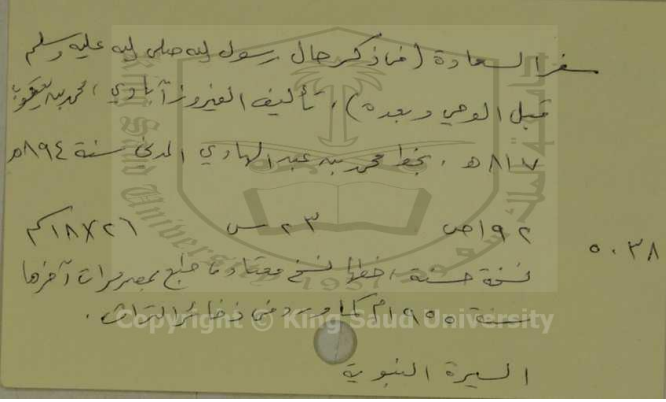 سفر السعادة (في ذكر حال رسول الله صلى الله عليه وسلم
قبل الوحي وبعده)، تأليف الفيروزآبادي، محمد بن يعقوب
٨١٧ هـ. بخط محمد بن عبد الهادي المدني سنة ٨٩٤ هـ
١٩٢ ص ٢٣ س ٢٦×١٨ سم
٥٠٣٨
نسخة حسنة، خطها نسخ معتاد طبع بمصر مرات آخرها
سنة ١٩٥٥م كما ورد في ذخائر التراث.
السيرة النبوية
King Saud University
1957
Copyright © King Saud University